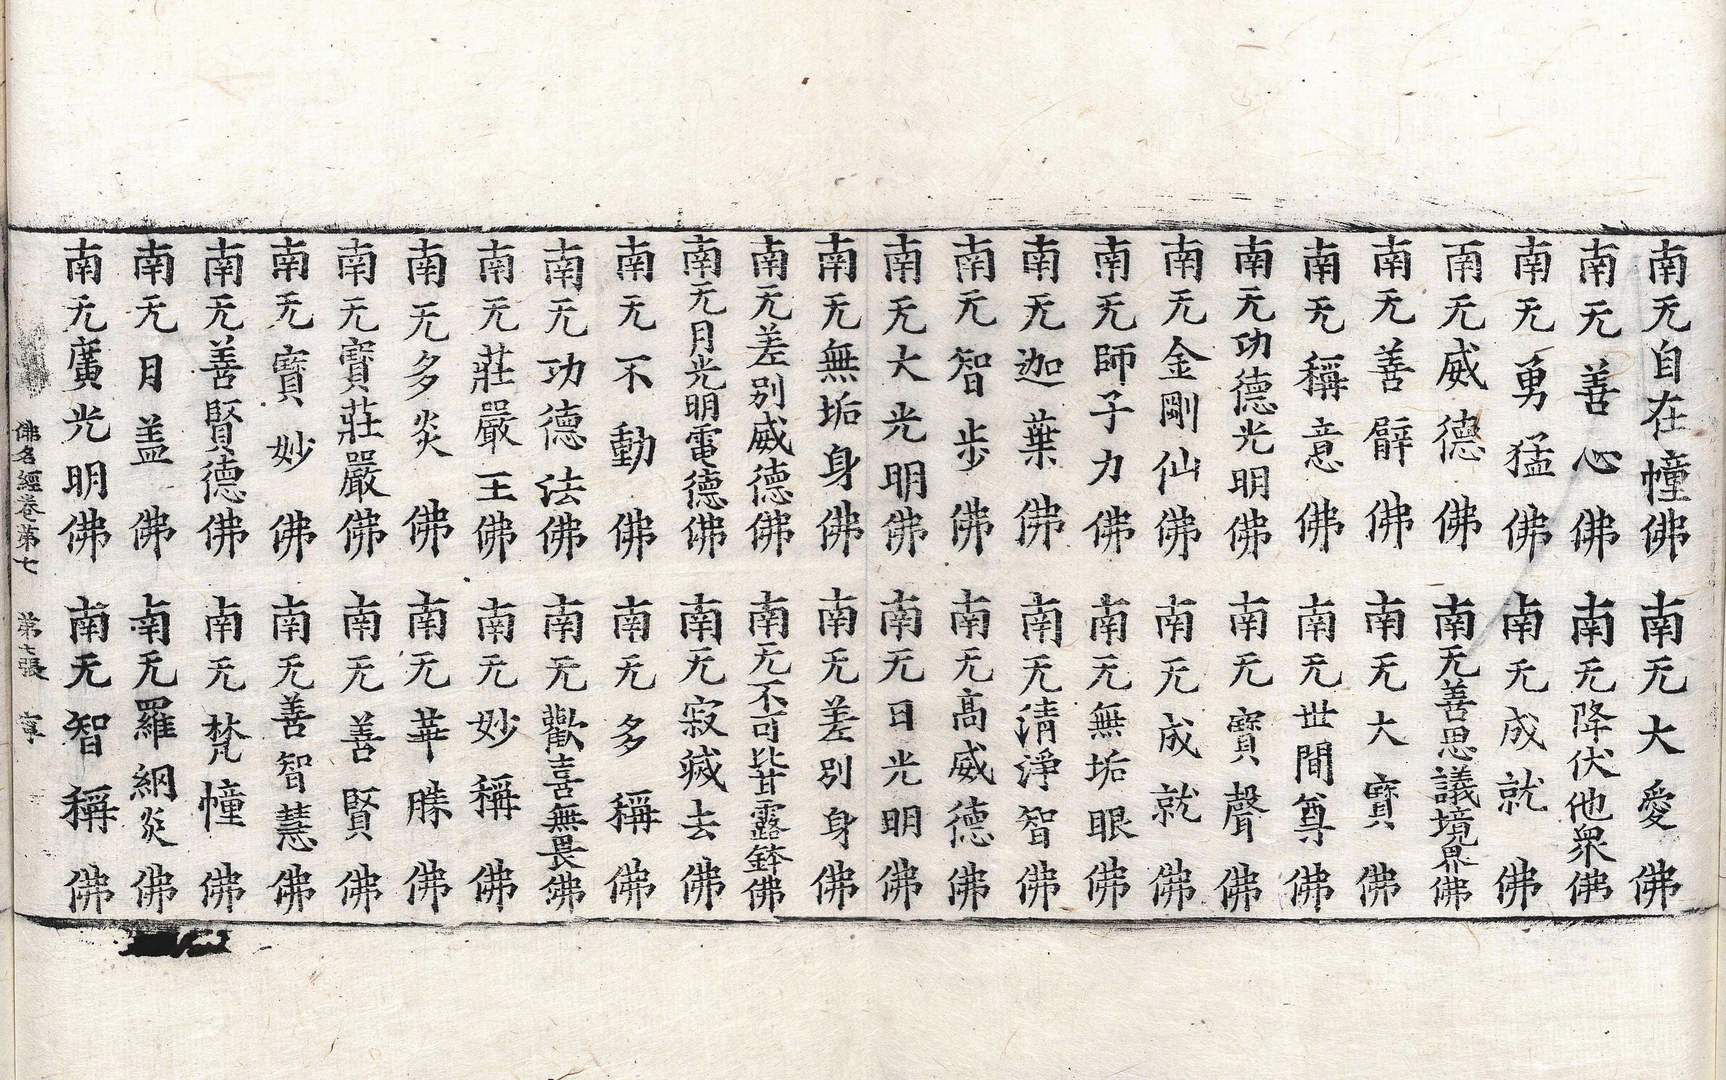 南无自在幢佛 南无大愛佛
南无善心佛 南无降伏他衆佛
南无勇猛佛 南无成就佛
南无威德佛 南无善思議境界佛
南无善臂佛 南无大寶佛
南无稱意佛 南无世間尊佛
南无功德光明佛 南无寶聲佛
南无金剛仙佛 南无成就佛
南无師子力佛 南无無垢眼佛
南无迦葉佛 南无清淨智佛
南无智步佛 南无高威德佛
南无大光明佛 南无日光明佛
南无無垢身佛 南无差別身佛
南无差別威德佛 南无不可比甘露鉢佛
南无月光明電德佛 南无寂滅去佛
南无不動佛 南无多稱佛
南无功德法佛 南无歡喜無畏佛
南无莊嚴王佛 南无妙稱佛
南无多炎佛 南无華勝佛
南无寶莊嚴佛 南无善賢佛
南无寶妙佛 南无善智慧佛
南无善賢德佛 南无梵幢佛
南无月盖佛 南无羅網炎佛
南无廣光明佛 南无智稱佛
佛名經卷第七 第七張